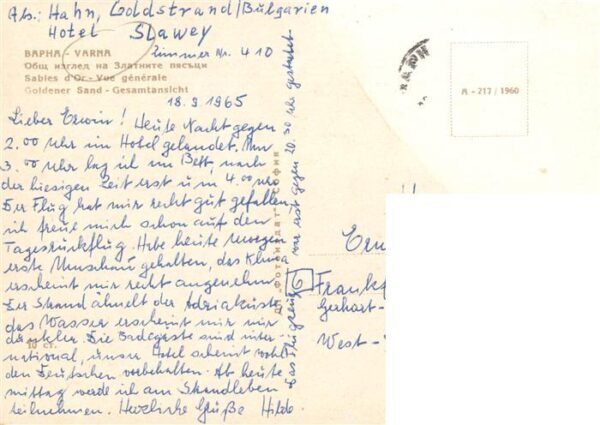 Abs: Hahn, Goldstrand/Bulgarien
Hotel Slawey
Zimmer Nr. 410
ВАРНА - VARNA
Общ изглед на Златните пясъци
Sables d'Or - Vue générale
Goldener Sand - Gesamtansicht
18.9.1965
Lieber Erwin! Heute Nacht gegen
2.00 Uhr im Hotel gelandet. Um
3.00 Uhr lag ich im Bett, nach
der hiesigen Zeit erst um 4.00 Uhr
Der Flug hat mir recht gut gefallen,
ich freue mich schon auf den
Tagesrückflug. Habe heute morgen
erste Umschau gehalten, das Klima
erscheint mir recht angenehm
Der Strand ähnelt der Adriaküste,
das Wasser erscheint mir nur
dunkler. Die Badegäste sind inter-
national, unser Hotel scheint wohl
den Deutschen vorbehalten. Ab heute
mittag werde ich am Strandleben
teilnehmen. Herzliche Grüße Hilde
Das Flugzeug war erst gegen 20.30 Uhr gestartet
10 ст.
ДП „Фотоиздат" - София
А - 217 / 1960
6
Frankf
Gerhart-
West-